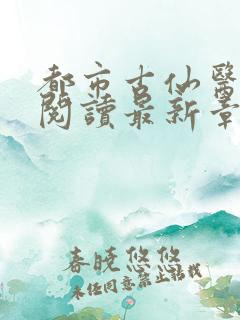 都市古仙醫
閱讀最新章
春晓悠悠
未经同意禁止转载